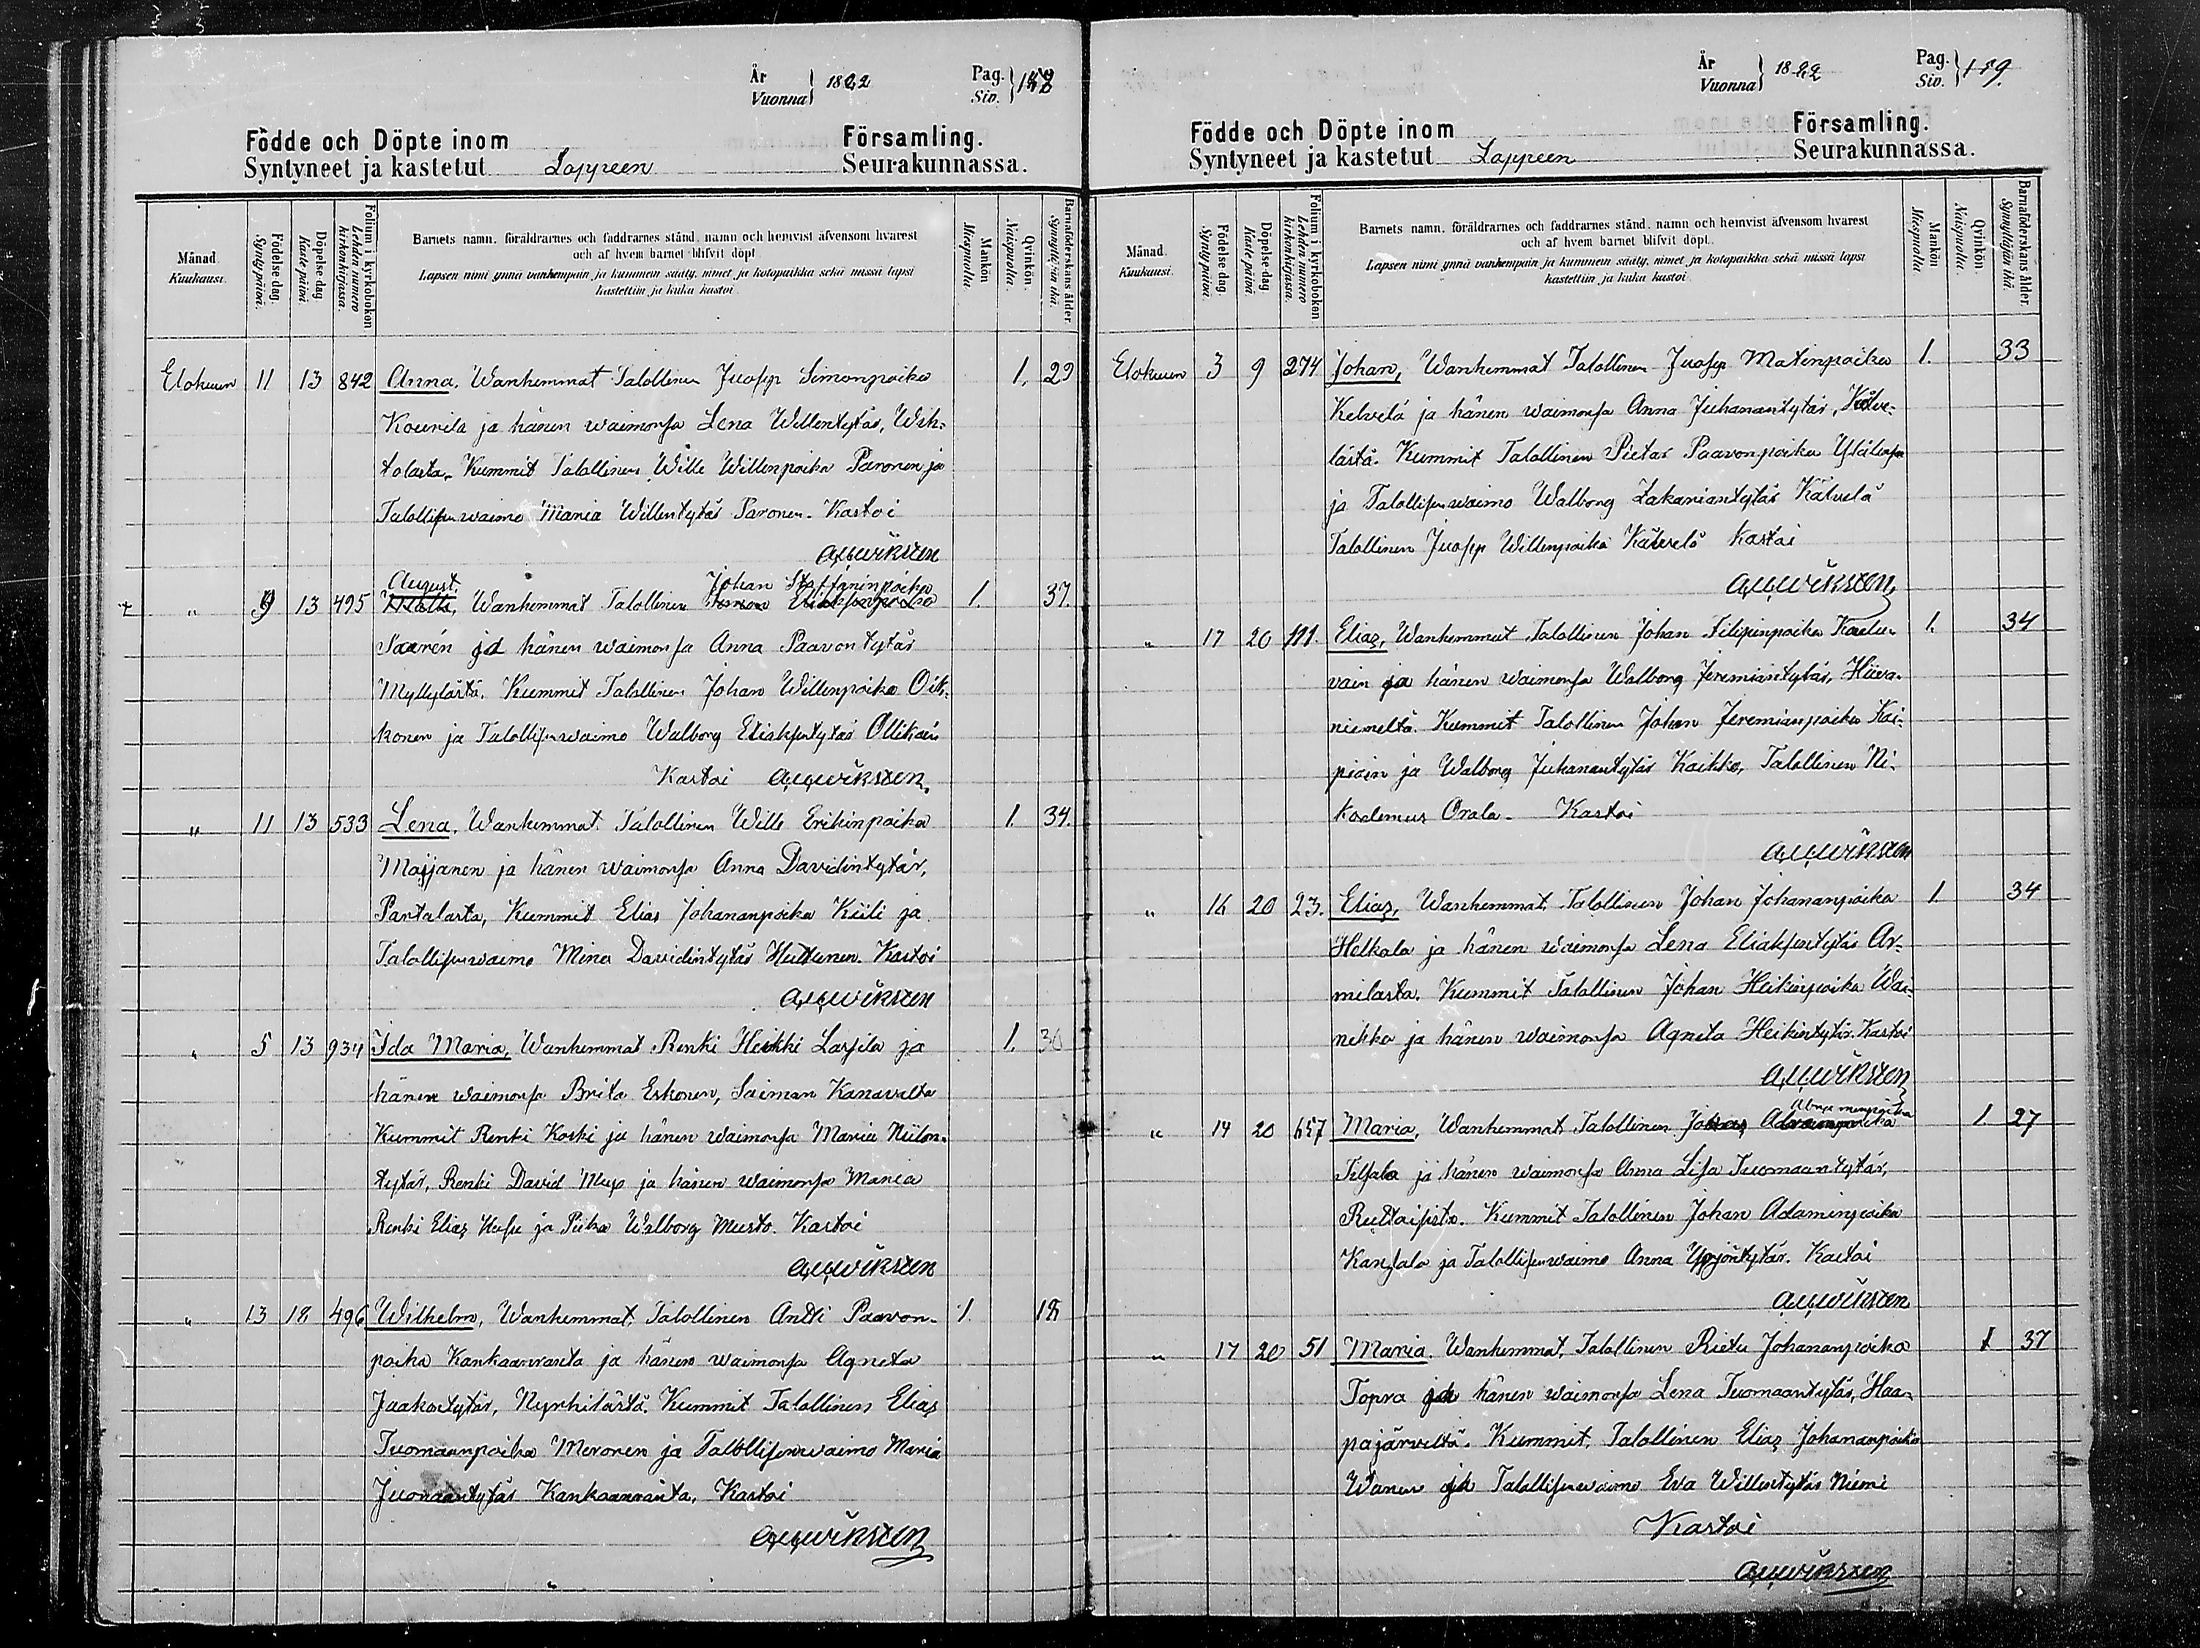 År Vuonna } 1882 Pag. Siv. } 158
Födde och Döpte inom Församling.
Syntyneet ja kastetut Lappeen Seurakunnassa.
Månad. Kuukausi. Födelse dag. Synty päivä. Döpelse dag Kaste päivä. Folium i kyrkoboken Lehden numero kirkonkirjassa. Barnets namn. föräldrarnes och faddrarnes stånd. namn och hemvist äfvensom hvarest Mankön Miespuolta Qvinkön. Naispuolta. Barnaföderskans ålder. Synyttäjän ikä.
och af hvem barnet blifvit döpt
Lapsen nimi ynnä vanhempain ja kummein sääty. nimet ja kotopaikka sekä missä lapsi
kastettiin ja kuka kastoi.
Elokuun 11 13 842 Anna. Wanhemmat Talollinen Juosep Simonpoika 1. 29
Kourila ja hänen waimonsa Lena Willentytär, Wih-
tolasta. Kummit Talollinen Wille Willenpoika Paronen ja
Talollisen waimo Maria Willentytär Paronen. Kastoi
August. Johan Staffaninpoika
+ " 9 13 495 Wanhemmat Talollinen 1. 37.
Saarén ja hänen waimonsa Anna Paavontytär
Myllylästä. Kummit Talollinen Johan Willenpoika Oik-
konen ja Talollisenwaimo Walborg Eliaksentytär Ollikain
Kastoi
" 11 13 533 Lena. Wanhemmat Talollinen Wille Erikinpoika 1. 34.
Majjanen ja hänen waimonsa Anna Davidintytär,
Pantalasta, Kummit Elias Johananpoika Kiili ja
Talollisenwaimo Mina Davidintytär Huttunen. Kastoi
" 5 13 934 Ida Maria, Wanhemmat Renki Heikki Lassila ja 1. 30
hänen waimonsa Brita Eskonen, Saiman Kanavalta
Kummit Renki Koski ja hänen waimonsa Maria Niilon-
tytär, Renki David ja hänen waimonsa Maria
Renki Elias ja Piika Walborg Musto. Kastoi
" 13 18 496 Wilhelm, Wanhemmat, Talollinen Antti Paavon- 1. 18
poika Kankaanranta ja hänen waimonsa Agneta
Jaakontytär, Nyrhilästä. Kummit Talollinen Elias
Tuomaanpoika Meronen ja Talollisenwaimo Maria
Juonaantytär Kankaanranta, Kastoi
År Vuonna } 1882 Pag. Siv. } 159.
Födde och Döpte inom Församling.
Syntyneet ja kastetut Lappeen Seurakunnassa.
Månad. Kuukausi. Födelse dag. Synty päivä. Döpelse dag Kaste päivä. Folium i kyrkoboken Lehden numero kirkonkirjassa. Barnets namn. föräldrarnes och faddrarnes stånd. namn och hemvist äfvensom hvarest Mankön Miespuolta Qvinkön. Naispuolta. Barnaföderskans ålder. Synyttäjän ikä.
och af hvem barnet blifvit döpt.
Lapsen nimi ynnä vanhempain ja kummein sääty. nimet ja kotopaikka sekä missä lapsi
kastettiin ja kuka kastoi.
Elokuun 3 9 274 Johan, Wanhemmat Talollinen Juosep Matinpoika 1. 33
Kelvelä ja hänen waimonsa Anna Juhanantytär, Kälve-
lästä. Kummit Talollinen Pietar Paavonpoika
ja Talollisenwaimo Walborg Zakariantytär Kälvelä
Talollinen Juosep Willenpoika Kälvelä Kastoi
" 17 20 111. Elias, Wanhemmat Talollinen Johan Filipinpoika Kaelu- 1. 34
vain ja hänen waimonsa Walborg Jeremiantytär, Hiiva-
niemeltä. Kummit Talollinen Johan Jeremianpoika Kai-
piain ja Walborg Juhanantytär Kaikko, Talollinen Ni-
kodemus Orala. Kastoi
" 16 20 23. Elias, Wanhemmat Talollinen Johan Johananpoika 1. 34
Holkala ja hänen waimonsa Lena Eliaksentytär Ar-
milasta. Kummit Talollinen Johan Heikinpoika Wai-
nikka ja hänen waimonsa Agneta Heikintytär. Kastoi
" 14 20 657 Maria, Wanhemmat Talollinen 1. 27
ja hänen waimonsa Anna Lisa Tuomaantytär,
Kummit Talollinen Johan Adaminpoika
Kansala ja Talollisenwaimo Anna Yrjöntytär. Kastoi
" 17 20 51 Maria. Wanhemmat, Talollinen Rietu Johananpoika 1 37
Topra ja hänen waimonsa Lena Tuomaantytär, Haa-
pajärveltä. Kummit, Talollinen Elias Johananpoika
Wanen ja Talollisenwaimo Eva Willentytär Niemi
Kastoi